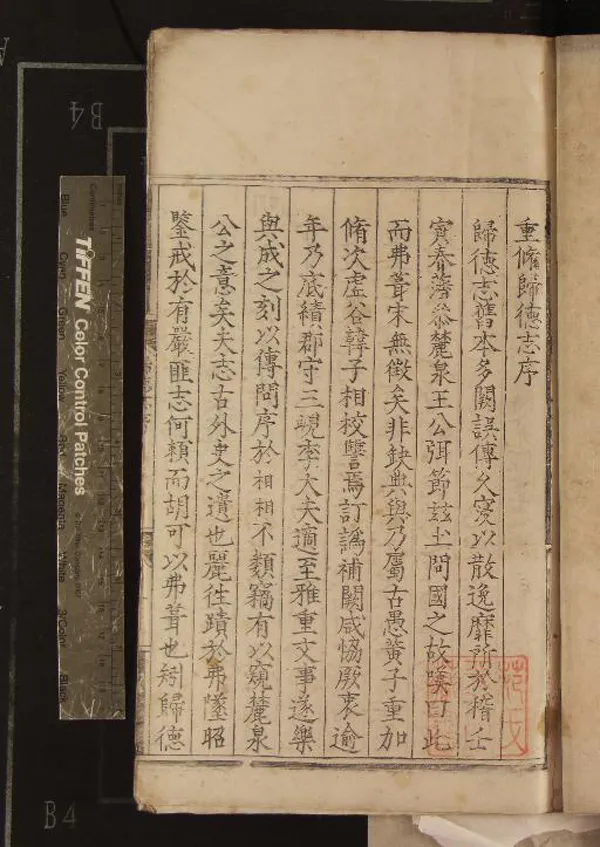 重脩歸德志序
歸德志舊本多闕誤傳久寖以散逸靡所於稽壬
寅春藩叅麓泉王公弭節玆土問國之故嘆曰此
而弗葺宋無徵矣非缺典與乃屬古愚黃子重加
脩次虛谷韓子相校讐焉訂譌補闕咸恊厥衷逾
年乃底績郡守三峴李大夫適至雅重文事遂樂
與成之刻以傳問序於相相不類竊有以窺麓泉
公之意矣夫志古外史之遺也麗徃蹟於弗墜昭
鑒戒於有嚴匪志何賴而胡可以弗葺也矧歸德
TIFFEN Color Control Patches
Blue
Cyan
Green
Yellow
Red
Magenta
White
3/Color
Black
Centimetres
B4
B4